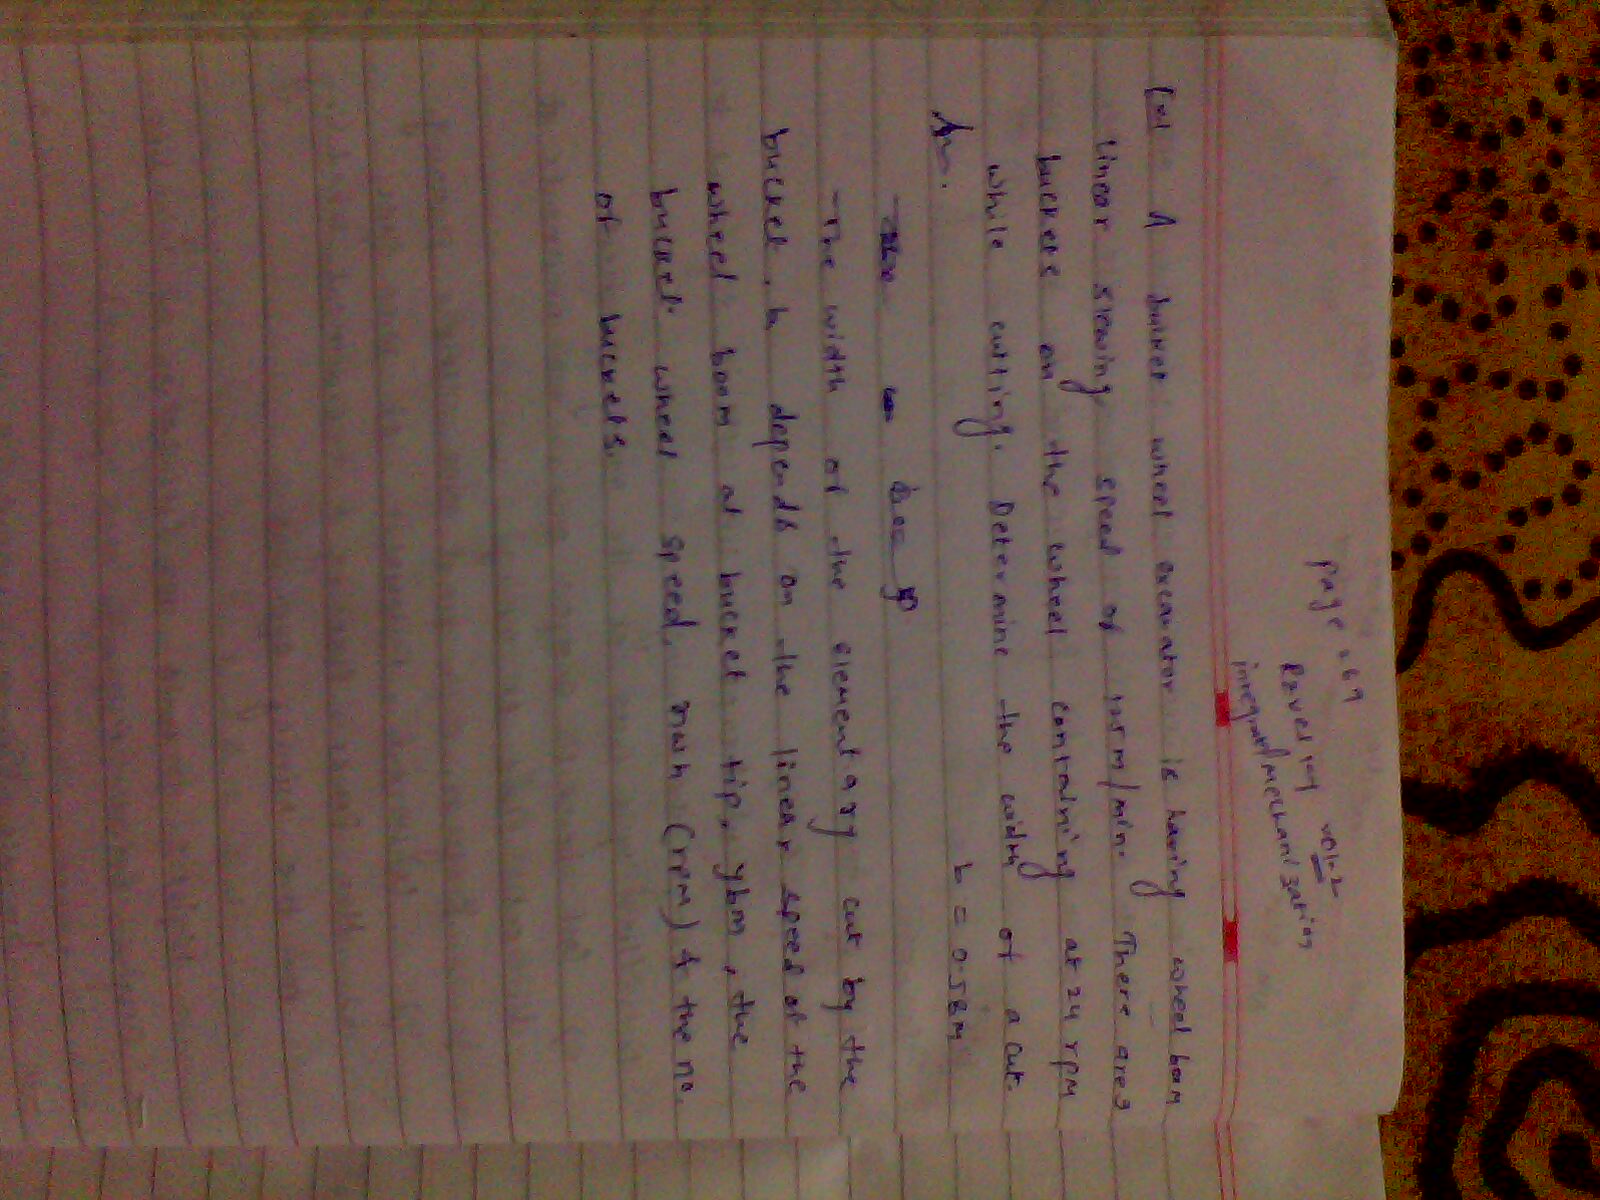 page 269
Raveling vol-2
integrated mechanization
A bucket wheel excavator is having wheel boom
linear slewing speed of 125 m/min. There are 9
buckets on the wheel containing at 24 rpm
while cutting. Determine the width of a cut
b = 0.58 m
Ans.
The width of the elementary cut by the
bucket, b depends on the linear speed of the
wheel boom at bucket tip, ybm, the
bucket wheel speed, nwh (rpm) & the no.
of buckets.